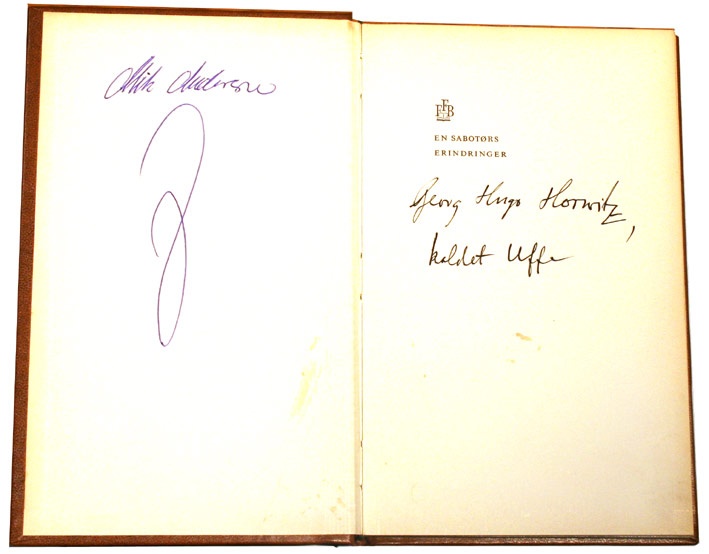 Mik Anderson
FFB
EN SABOTØRS
ERINDRINGER
Georg Hugo Horwitz,
kaldet Uffe